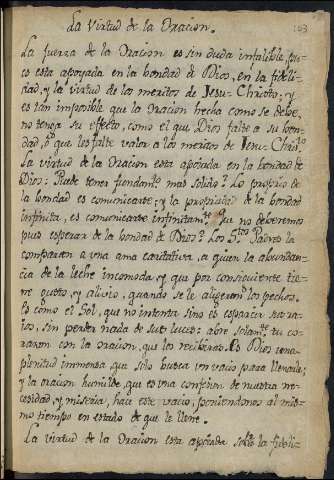 La Virtud de la Oracion.
103
La fuerza de la Oracion es sin duda infalible, pues
es esta apoyada en la bondad de Dios, en la fideli-
dad, y la virtud de los meritos de Jesu-Christo, y
es tan imposible que la Oracion hecha como se debe,
no tenga su effecto, como el que Dios falte a su bon-
dad, o que les falte valor a los meritos de Jesu-Christo.
La virtud de la Oracion esta apoiada en la bondad de
Dios: Puede tener fundamto mas solido? Lo proprio de
la bondad es comunicarse; y la propriedad de la bondad
infinita, es comunicarse infinitamte. Que no deberemos
pues esperar de la bondad de Dios? Los Stos Padres la
comparan a una ama caritativa, a quien la abundan-
cia de la leche incomoda, y que por consiguiente tie-
ne gusto, y alivio, quando se le aligeran los pechos.
Es como el Sol, que no intenta sino es esparcir sus ra-
ios, sin perder nada de sus luces: abre solamte tu co-
razon con la oracion, que los recibiras. Es Dios una
plenitud immensa que solo busca un vacio para llenarle;
y la oracion humilde que es una confesion de nuestra ne-
cesidad, y miseria, hace este vacio, poniendonos al mis-
mo tiempo en estado de que le llene.
La virtud de la Oracion esta apoiada sobre la fideli-